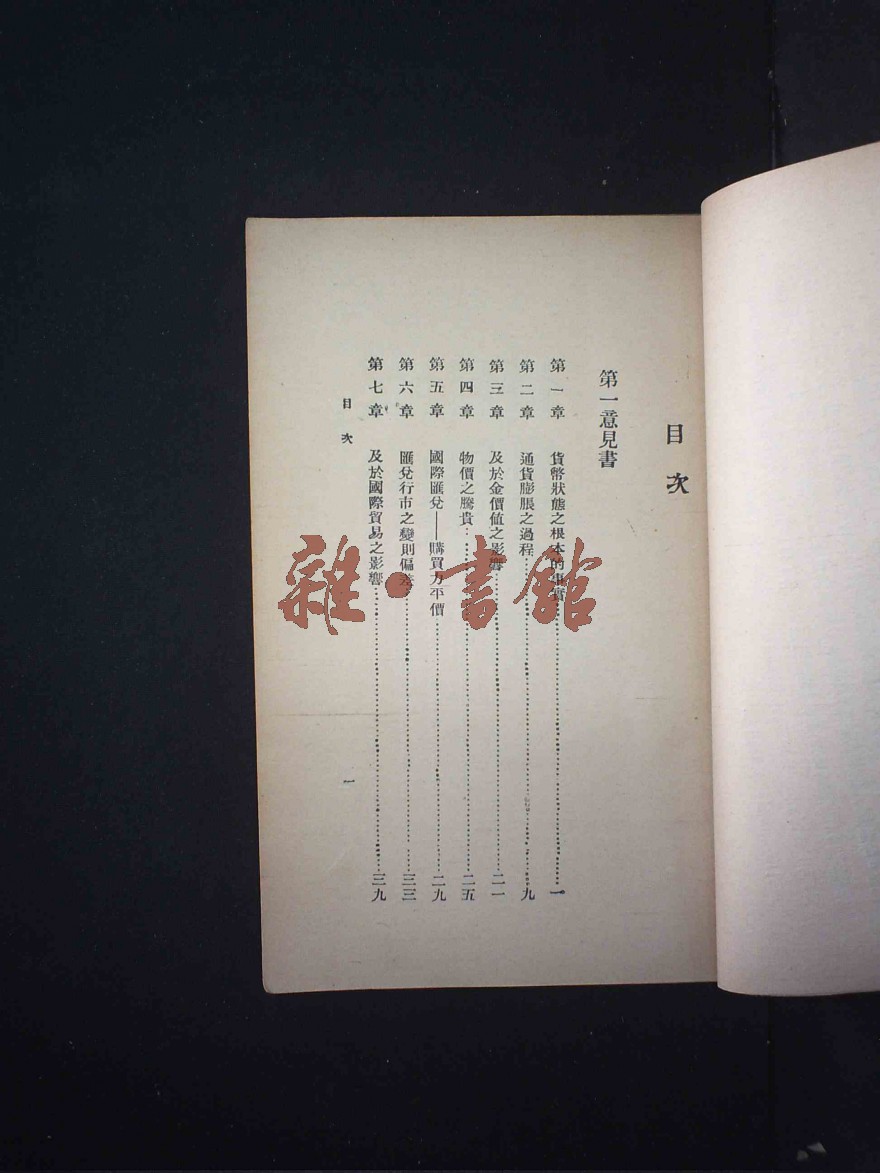 目次
第一意見書
第一章 貨幣狀態之根本的事實……一
第二章 通貨膨脹之過程……九
第三章 及於金價值之影響……二一
第四章 物價之騰貴……二五
第五章 國際匯兌——購買力平價……二九
第六章 匯兌行市之變則偏差……三三
第七章 及於國際貿易之影響……三九
目次 一
雜·書館